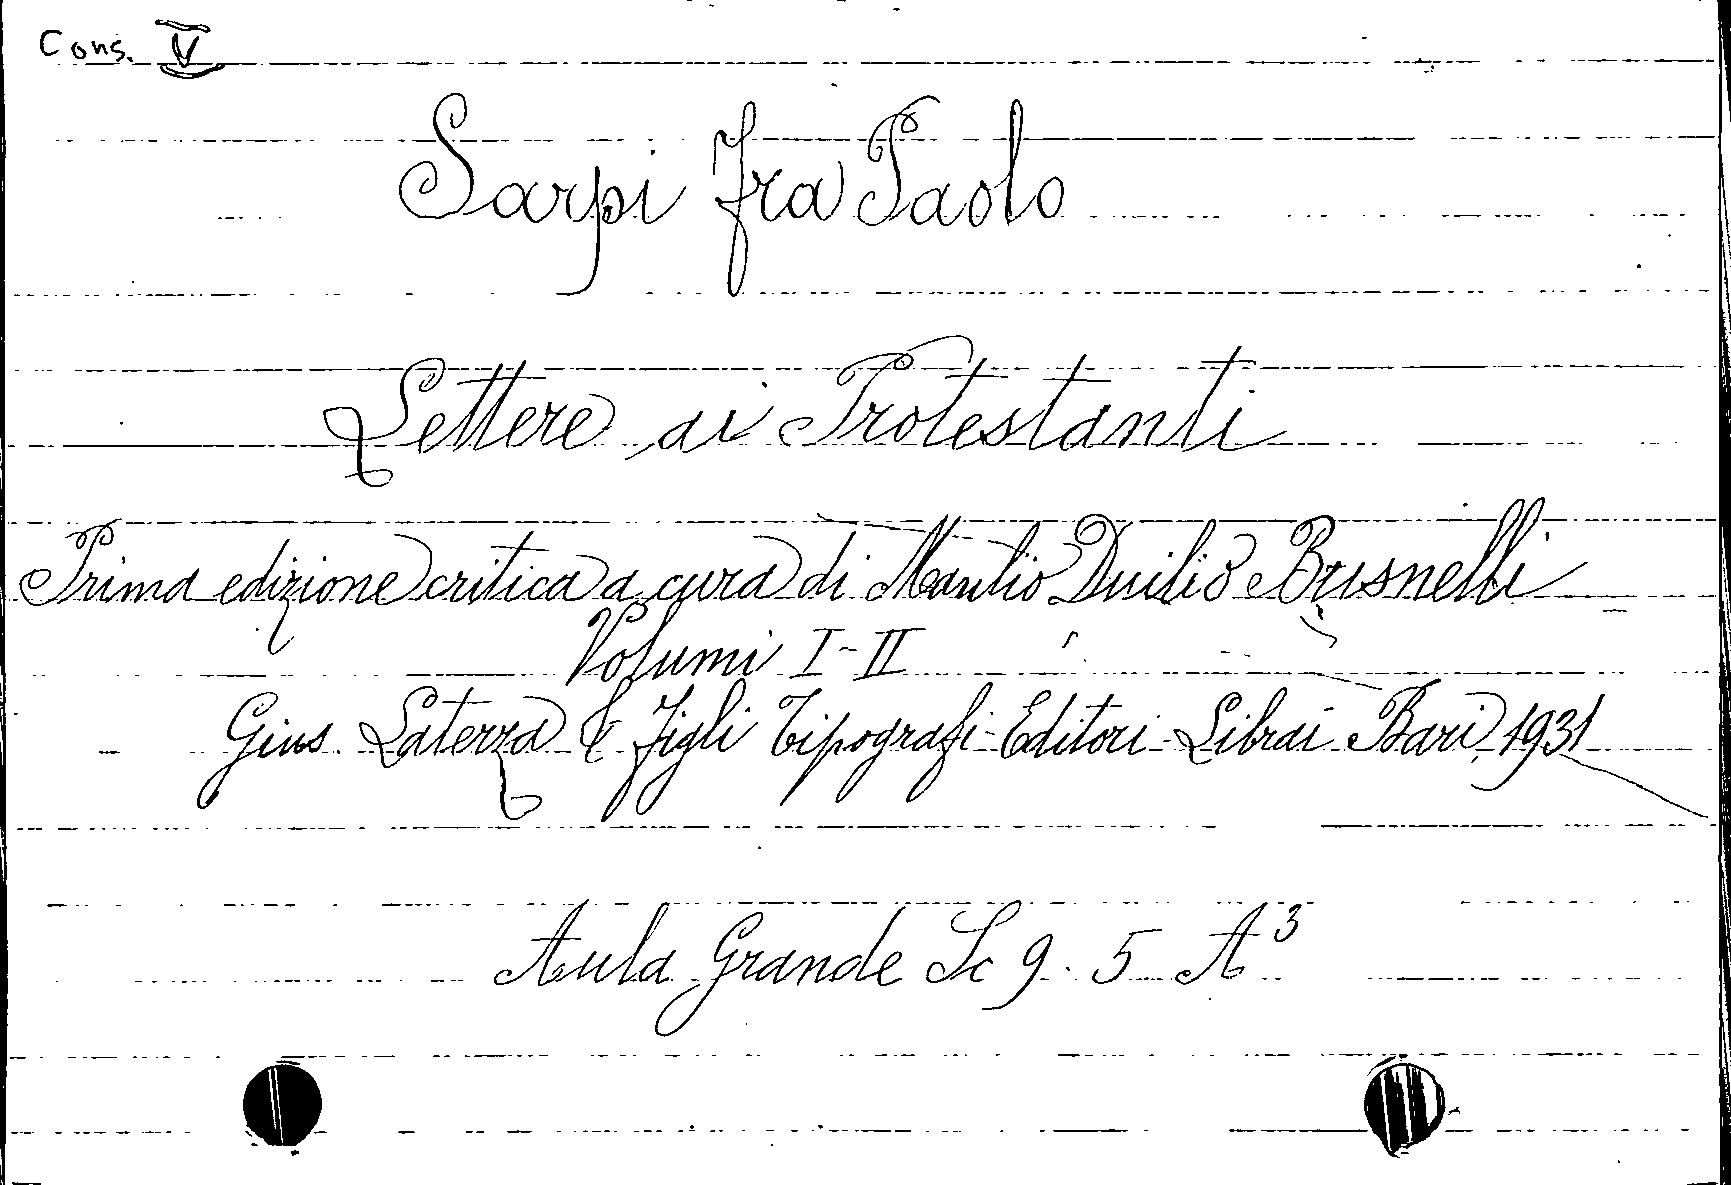 Cons. V
Sarpi Fra Paolo
Lettere ai Protestanti
Prima edizione critica a cura di Manlio Duilio Busnelli
Volumi I-II
Gius. Laterza & Figli Tipografi-Editori-Librai Bari, 1931
Aula Grande Sc 9. 5 A³